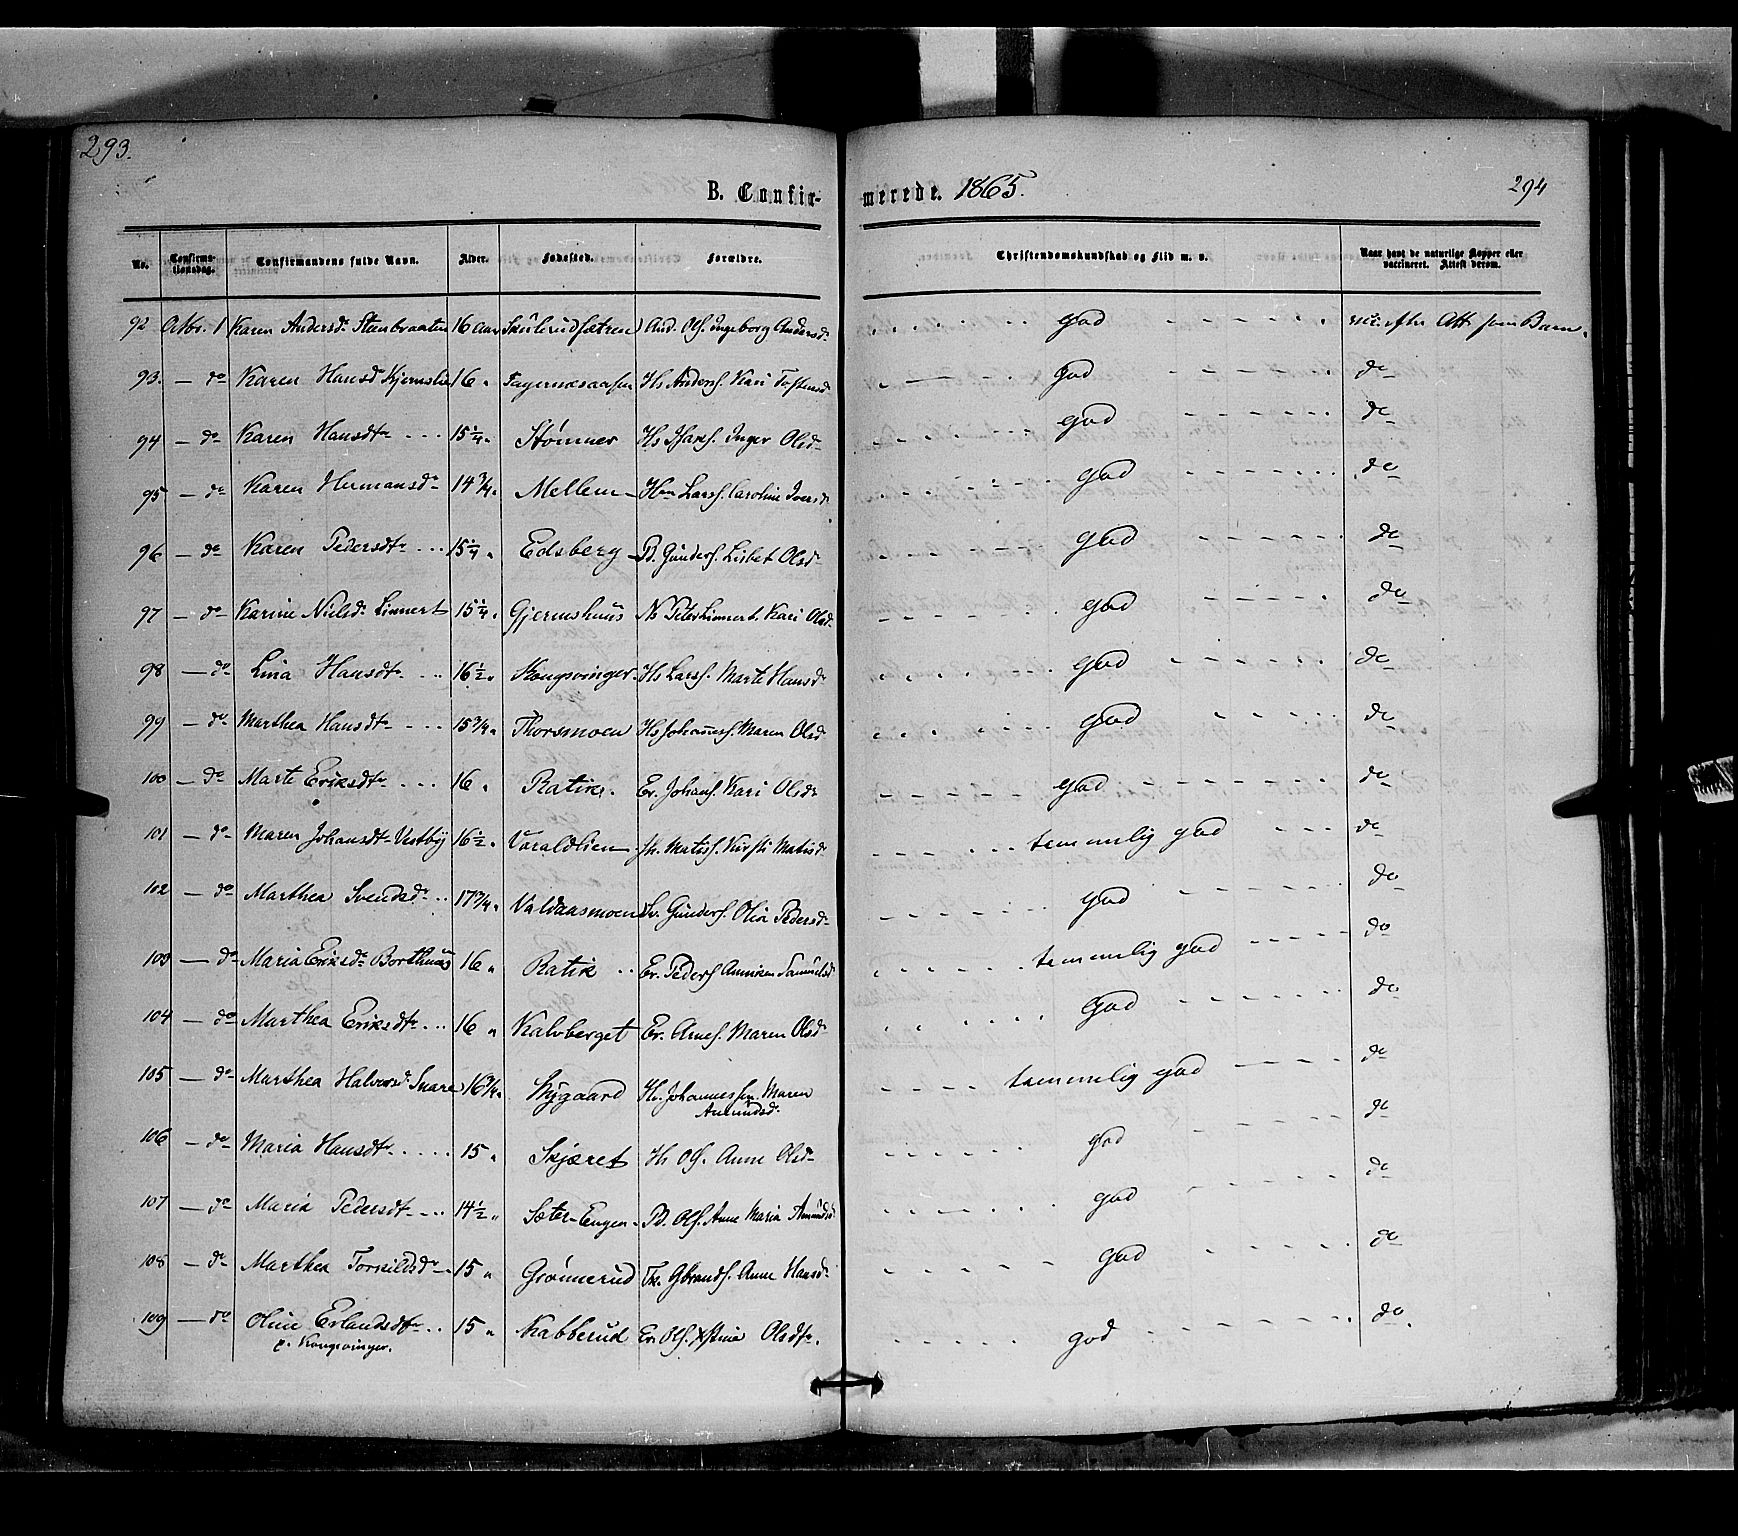 293.
B. Confir-
merede. 1865.
294
No. Confirmationsdag. Confirmandens fulde Navn. Alder. Fødested. Forældre. Christendomskundskab og Flid m. v. Naar havt de naturlige Kopper eller vaccineret. Attest derom.
92 Octbr. 1 Karen Andersdr Steenbraaten 16 aar Skulerudsætren And. Ols. Ingeborg Andersdr god vac. efter Att som Barn.
93. — do Karen Hansd Kjernslie 16 " Fagernæsaasen Hs Anders. Kari Tostensd god do
94 — do Karen Hansdtr 15 1/4 " Stømner Hs Isaks. Inger Olsd god do
95 — do Karen Hermansdr 14 3/4 " Mellem Hm Larss. Caroline Iversd god do
96 — do Karen Pedersdtr 15 1/4 " Edsberg P. Gunders. Lisbet Olsd god do
97 — do Karine Nielsdr Linnert 15 1/4 " Gjermshuus Ns Peter Linnert. Kari Olsd god do
98 — do Lina Hansdtr 16 1/2 " Kongsvinger Hs Larss. Marte Hansd god do
99 — do Marthea Hansdtr 15 3/4 " Thorsmoen Hs Johanness. Maren Olsd god do
100 — do Marte Eriksdtr 16 " Ratik Er. Johans. Kari Olsdr god do
101 — do Maren Johansdtr Vestby 16 1/2 " Varaldlien Jh. Matiss. Kirsti Matisd temmelig god do
102 — do Marthea Svendsdr 17 3/4 " Valdaasmoen Sv. Gunders. Olia Pedersd god do
103 — do Maria Eriksdr Borthuus 16 " Ratik Er. Peders Anniken Samuelsd temmelig god do
104 — do Marthea Eriksdtr 16 " Kalvberget Er. Arnes. Maren Olsd god do
105 — do Marthea Halvorsd. Snare 16 3/4 " Nygaard Hr. Johannessen. Maren
Amundsd.
temmelig god do
106 — do Maria Hansdtr 15 " Skjæret Hs Ols. Anne Olsd god do
107 — do Maria Pedersdtr 14 1/2 " Sæter-Engen P. Ols. Anne Maria Amundsd god do
108 — do Marthea Torkildsdr 15 " Grønnerud Tr. Gbrands. Anne Hansd god do
109 — do Oline Erlandsdtr 15 " Kabberud Er. Ols. Xstine Olsdtr. god do.
p. Kongsvinger.